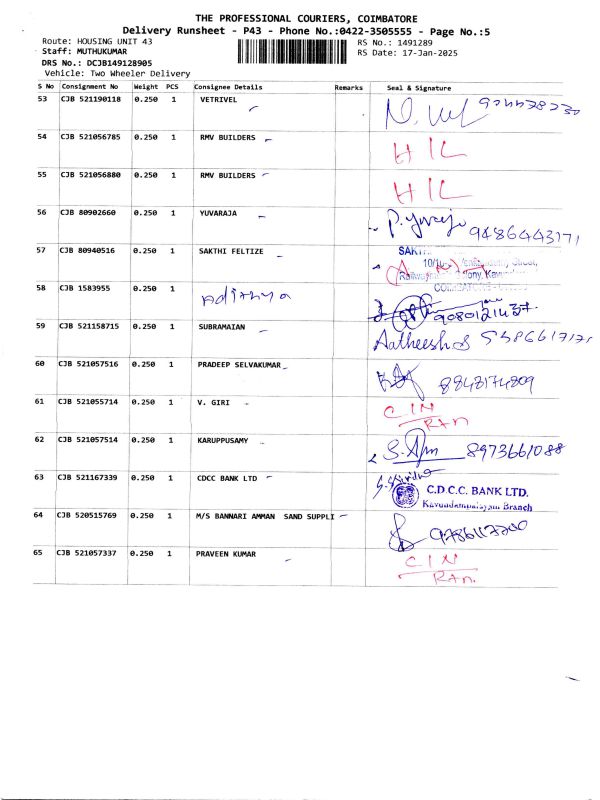 THE PROFESSIONAL COURIERS, COIMBATORE
Delivery Runsheet - P43 - Phone No.:0422-3505555 - Page No.:5
Route: HOUSING UNIT 43 RS No.: 1491289
Staff: MUTHUKUMAR RS Date: 17-Jan-2025
DRS No.: DCJB149128905
Vehicle: Two Wheeler Delivery
S No Consignment No Weight PCS Consignee Details Remarks Seal & Signature
53 CJB 521190118 0.250 1 VETRIVEL
54 CJB 521056785 0.250 1 RMV BUILDERS HIL
55 CJB 521056880 0.250 1 RMV BUILDERS HIL
56 CJB 80902660 0.250 1 YUVARAJA P. Yuvaraja 9486443171
57 CJB 80940516 0.250 1 SAKTHI FELTIZE SAKTHI
58 CJB 1583955 0.250 1 Adithya 9080121437
59 CJB 521158715 0.250 1 SUBRAMAIAN Aatheesh S
60 CJB 521057516 0.250 1 PRADEEP SELVAKUMAR 8848174809
61 CJB 521055714 0.250 1 V. GIRI CIN
RTN
62 CJB 521057514 0.250 1 KARUPPUSAMY 8973661088
63 CJB 521167339 0.250 1 CDCC BANK LTD C.D.C.C. BANK LTD.
Kavundampalayam Branch
64 CJB 520515769 0.250 1 M/S BANNARI AMMAN SAND SUPPLI
65 CJB 521057337 0.250 1 PRAVEEN KUMAR CIN
RTN.